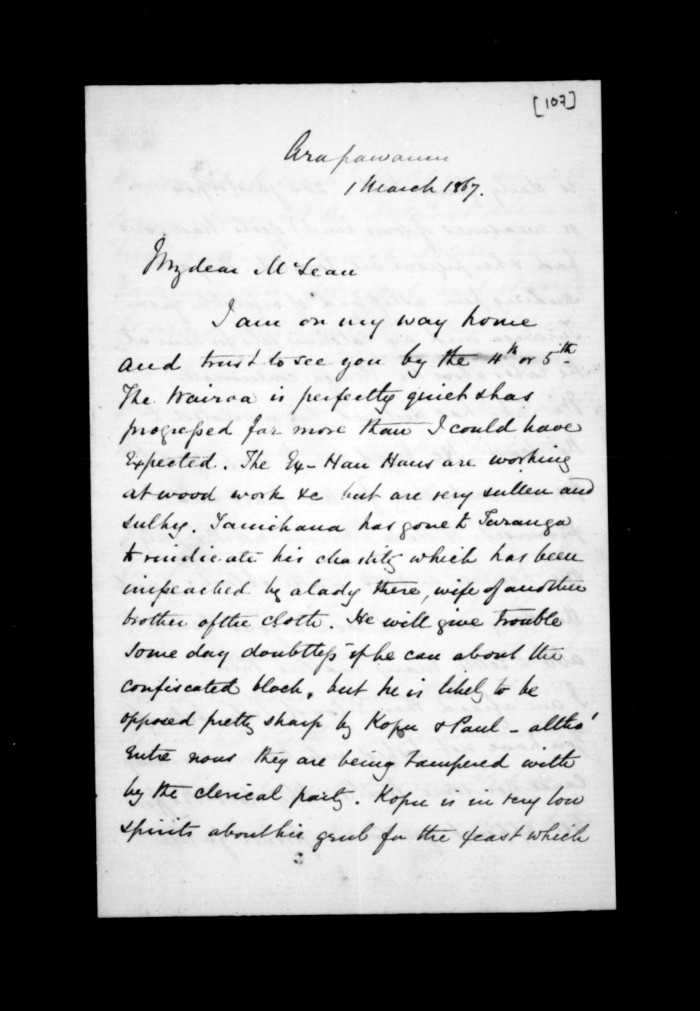 [107]
Arapawanui
1 March 1867.
My dear McLean
I am on my way home
and trust to see you by the 4th or 5th.
The Wairoa is perfectly quiet & has
progressed far more than I could have
expected. The Ex-Hau Haus are working
at wood work &c but are very sullen and
sulky. Tamihana has gone to Turanga
to vindicate his chastity which has been
impeached by a lady there, wife of another
brother of the cloth. He will give trouble
some day doubtless if he can about the
confiscated block, but he is likely to be
opposed pretty sharp by Kopu & Paul - altho'
entre nous they are being tampered with
by the clerical party. Kopu is in very low
spirits about his grub for the feast which